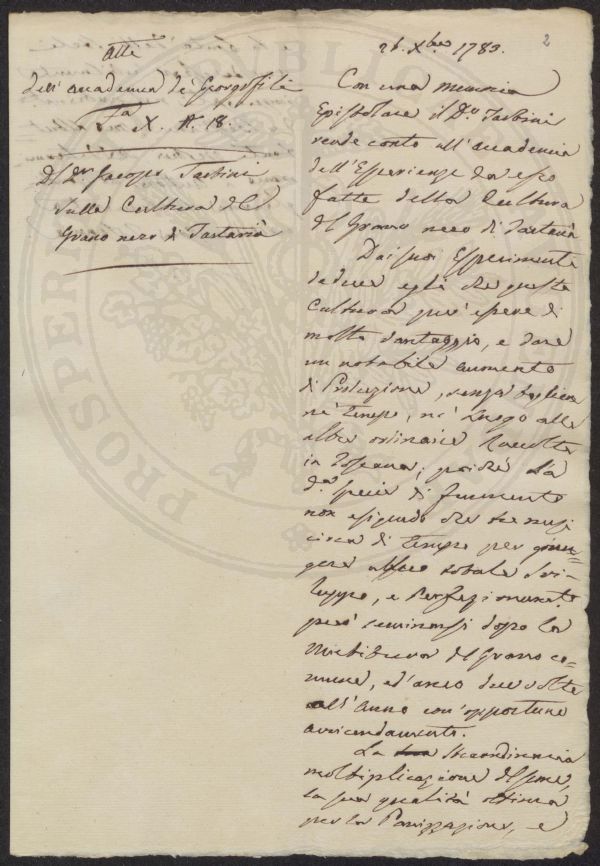 Atti
dell'accademia de Georgofili
Fa X. N. 18.
Del Dr. Jacopo Tartini
sulla Cultura del
Grano nero di Tartaria
2
26. Xbre 1783.
Con una memoria
Epistolare il Dr. Tartini
rende conto all'accademia
dell'Esperienze da esso
fatte della Cultura
del Grano nero di Tartaria
Dai suoi Esperimenti
deduce egli che questa
Cultura può essere di
molto vantaggio, e dare
un notabile aumento
di Produzione, senza togliere
nè tempo, nè luogo alle
altre ordinarie Raccolte
in Toscana; poichè la
da. specie di frumento
non esigendo che tre mesi
circa di tempo per giun-
gere al suo totale Svi-
luppo, e Perfezionamento
può seminarsi dopo la
Mietitura del Grano co-
mune, ed anco due volte
all'Anno con'opportuno
avvicendamento.
La straordinaria
moltiplicazione del seme,
la sua qualità ottima
per la Panizzazione, e
PUBLIC
PROSPERI